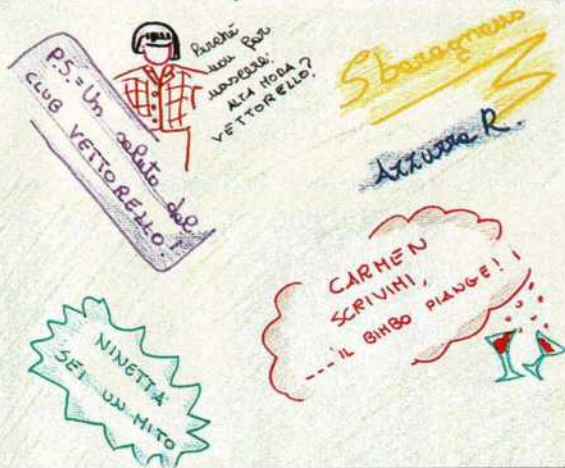 P.S. = Un saluto dal
CLUB VETTORELLO!
Perché
non far
nascere:
ALTA MODA
VETTORELLO?
Sbaragneus
Azzurra R.
CARMEN
SCRIVIMI,
---IL BIMBO PIANGE!
NINETTA
SEI UN MITO